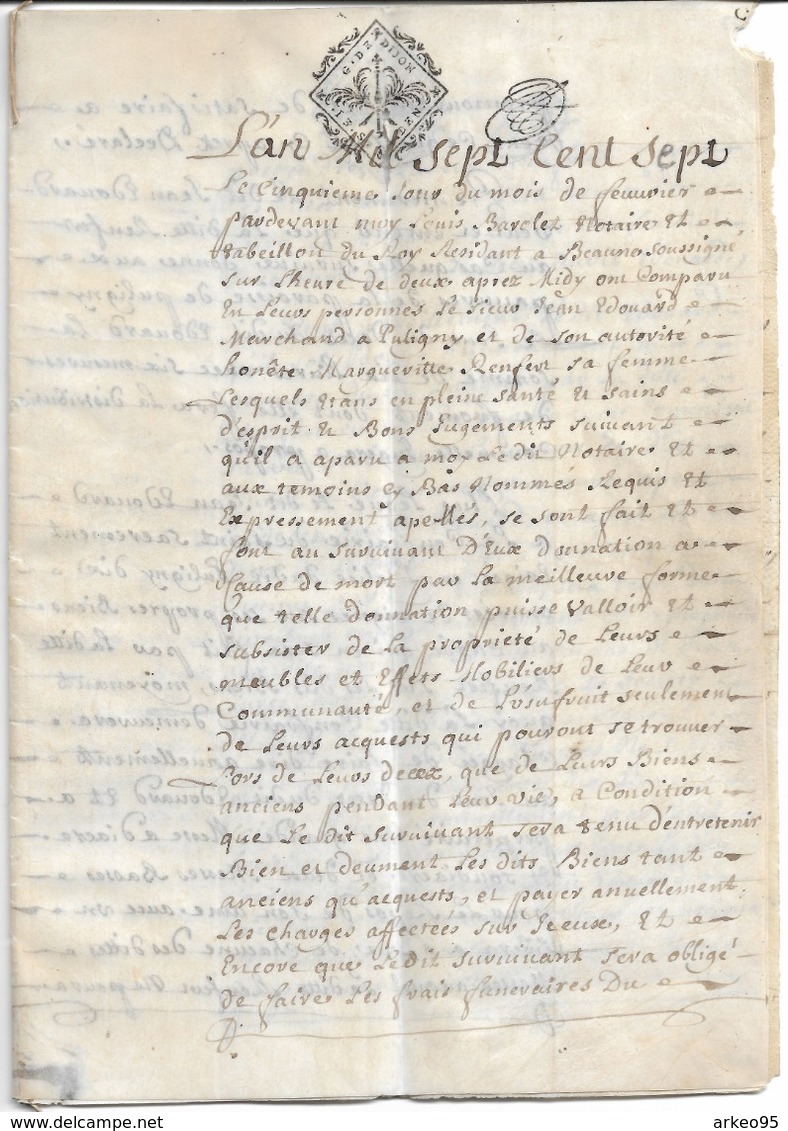 G · DE · DIJON
L'an Mil sept Cent sept
Le Cinquieme Jour du mois de feuvrier
pardevant moy Louis Barolet Notaire Et
tabeillon du Roy Residant a Beaune soussigné,
sur l'heure de deux aprez Midy ont Comparu
En Leurs personnes Le sieur Jean Edouard
Marchand a Puligny et de son autorité
honête Margueritte Renfert sa femme
Lesquels Etans en pleine santé et sains
d'esprit et Bons Jugements suivant
qu'il a aparu a moy Ledit Notaire Et
aux temoins cy Bas Nommés Requis Et
Expressement apellés, se sont fait et
font au survivant D'Eux donnation a
Cause de mort par La meilleure forme
que telle donnation puisse valloir Et
subsister de La proprieté de Leurs
meubles et Effets Mobiliers de Leur
Communauté, et de L'usufruit seulement
de Leurs acquests qui pouront se trouver
Lors de Leurs decez, que de Leurs Biens
anciens pendant Leur vie, a Condition
que Le dit survivant sera tenu d'entretenir
Bien et deument Les dits Biens tant
anciens qu'acquests, et payer anuellement
Les charges affectées sur Iceux, Et
Encore que Ledit survivant sera obligé
de faire Les frais funeraires Du
www.delcampe.net
arkeo95